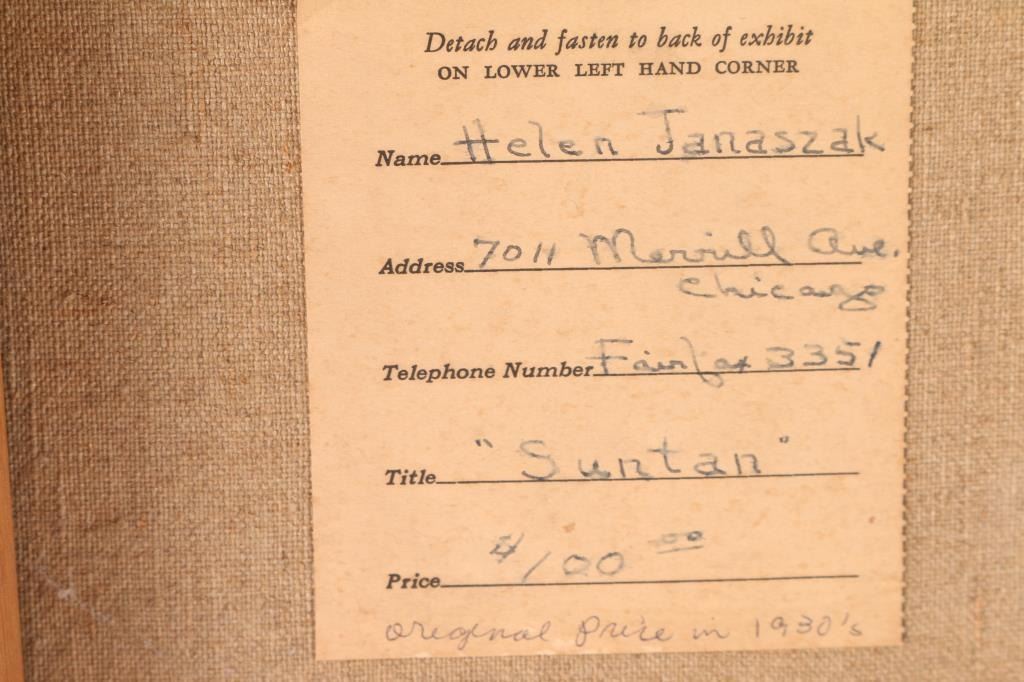 Detach and fasten to back of exhibit
ON LOWER LEFT HAND CORNER
Name Helen Janaszak
Address 7011 Merrill Ave.
Chicago
Telephone Number Fairfax 3351
Title "Suntan"
Price $100 00
original price in 1930's